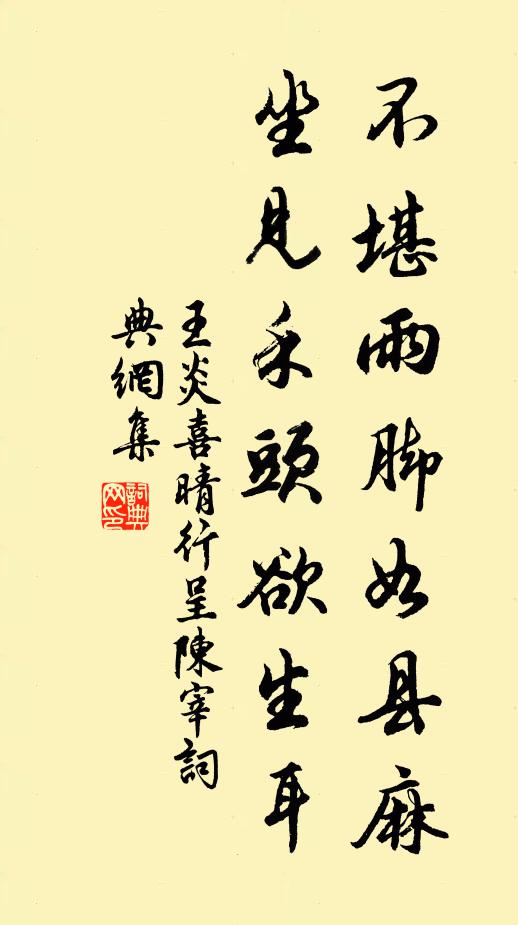 不堪雨脚如县麻
坐见禾頭欲生耳
王炎喜晴行呈陳宰詞
典網集
詞典网印